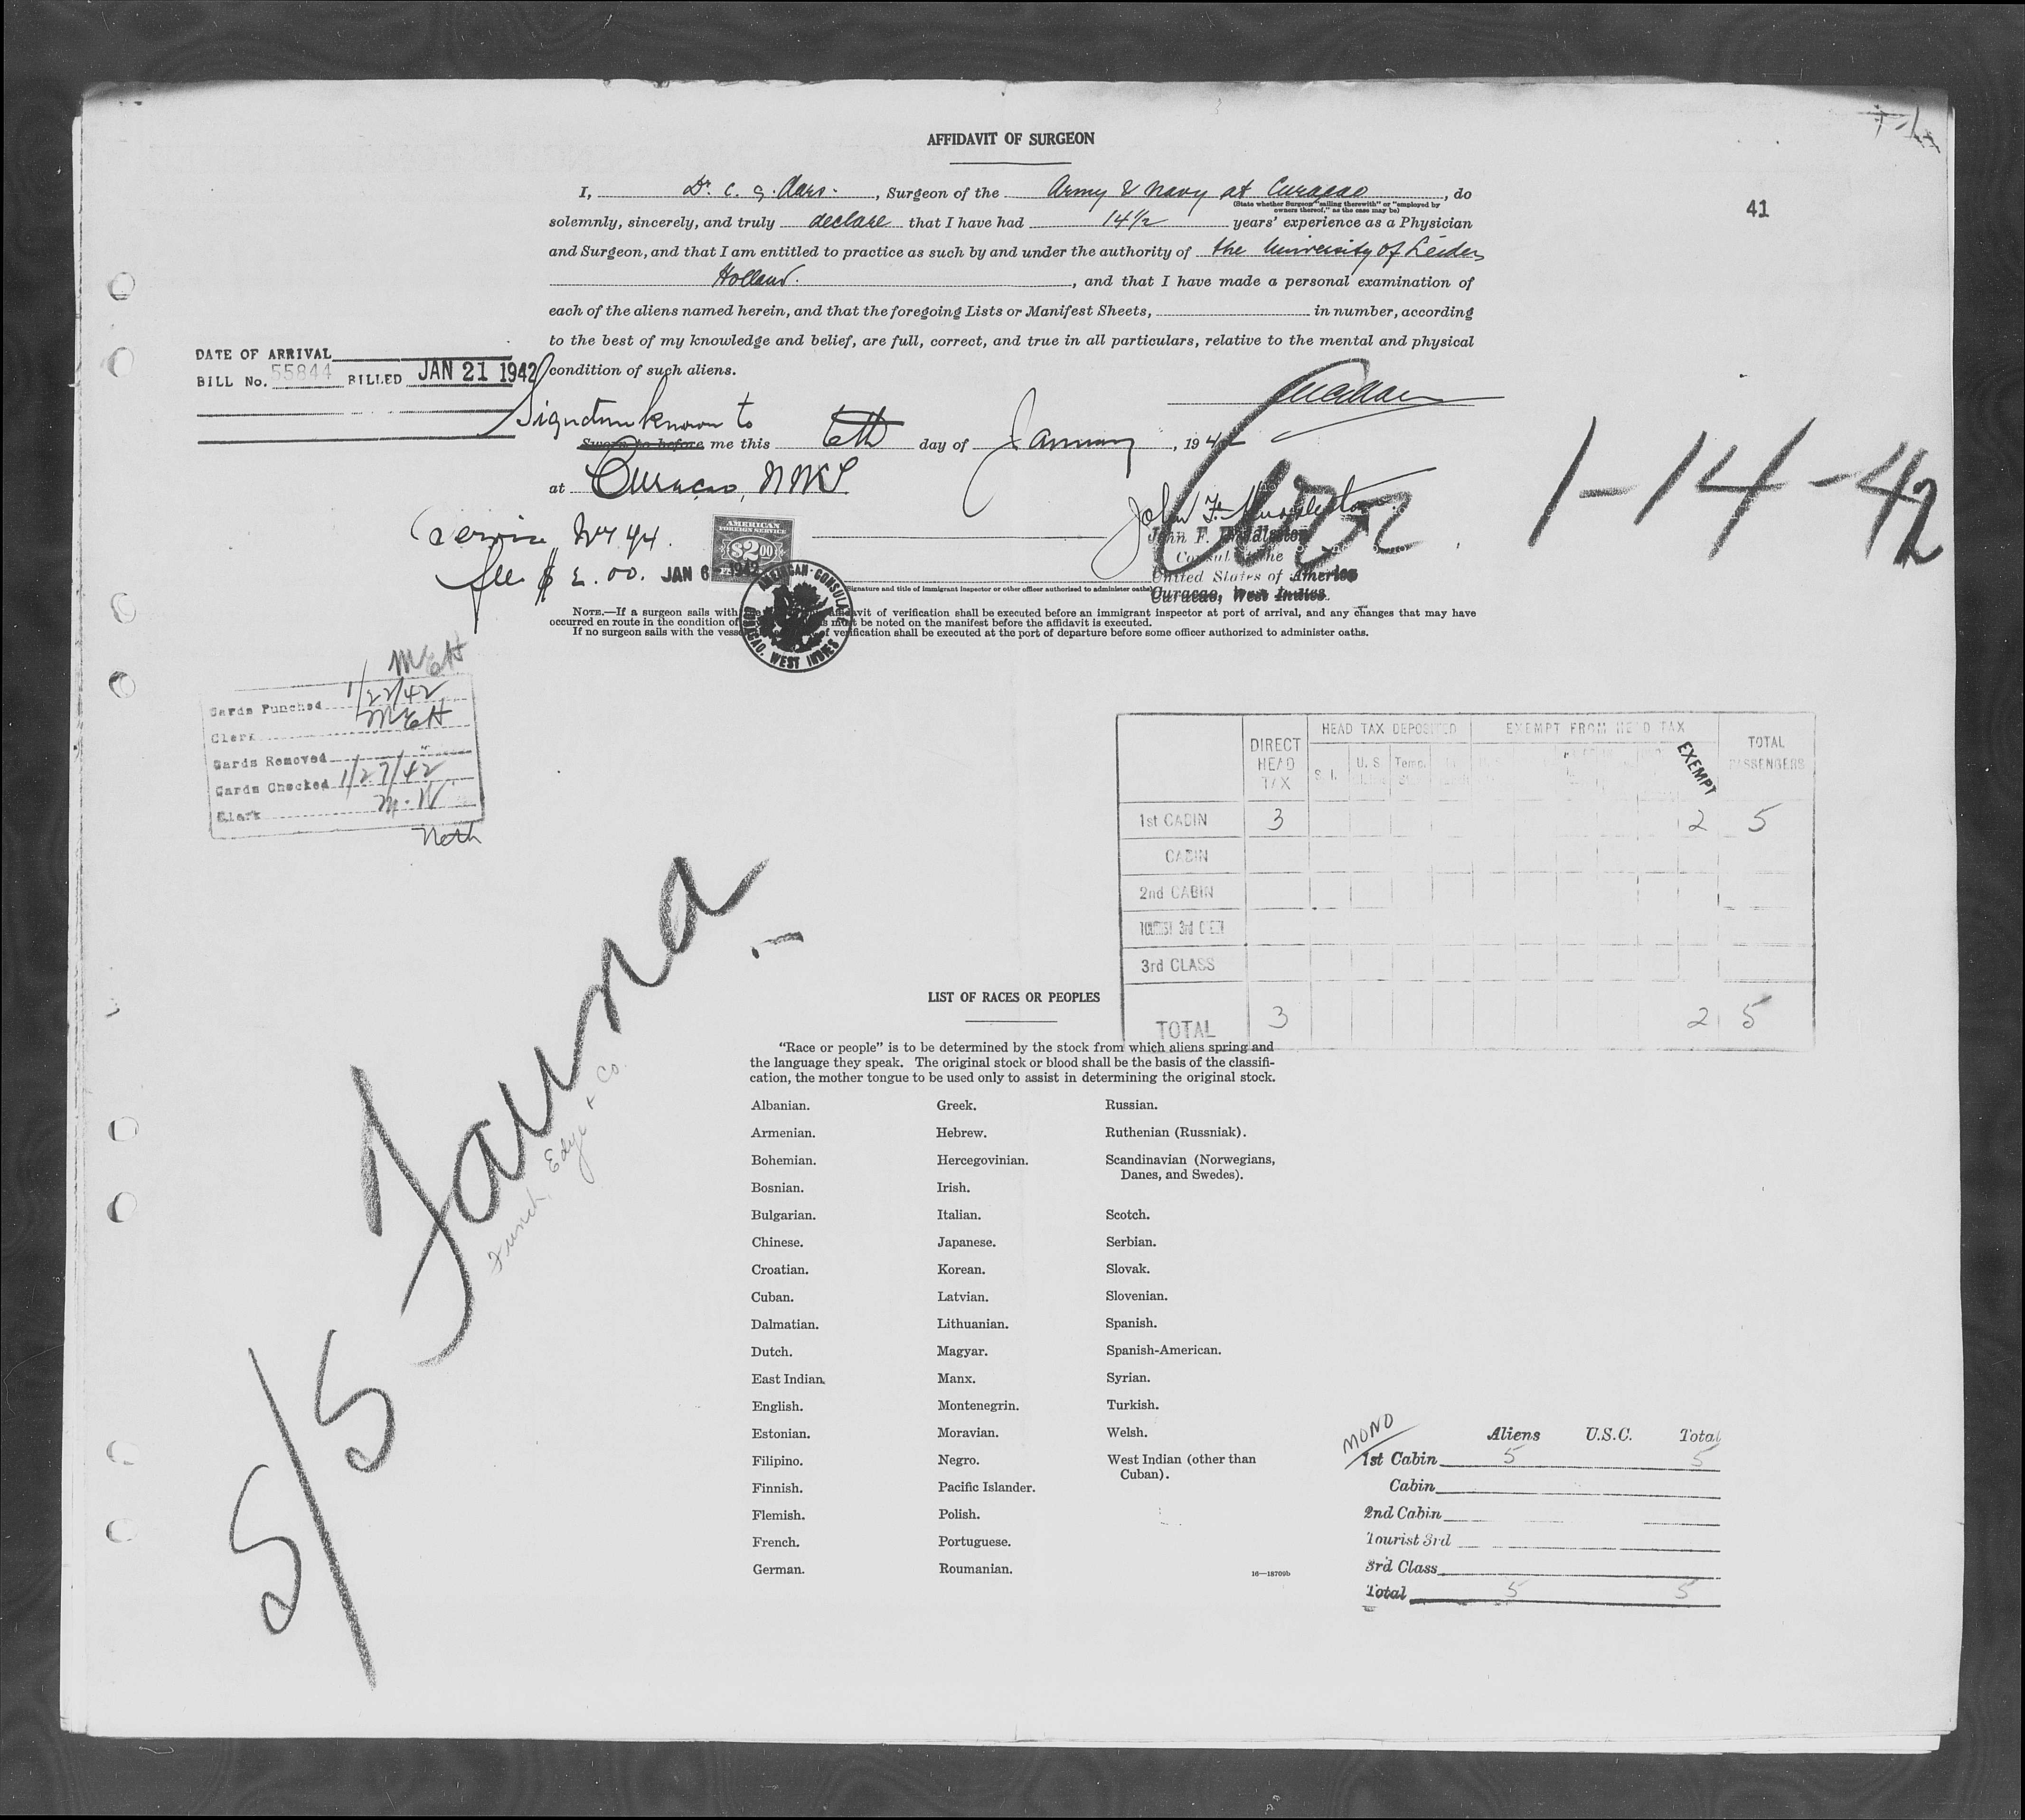 AFFIDAVIT OF SURGEON
41
I, Dr. C. G. , Surgeon of the Army & Navy at Curaçao, do
(State whether Surgeon "sailing therewith" or "employed by
owners thereof," as the case may be)
solemnly, sincerely, and truly declare that I have had 14½ years' experience as a Physician
and Surgeon, and that I am entitled to practice as such by and under the authority of the University of Leiden
Holland., and that I have made a personal examination of
each of the aliens named herein, and that the foregoing Lists or Manifest Sheets, in number, according
to the best of my knowledge and belief, are full, correct, and true in all particulars, relative to the mental and physical
condition of such aliens.
DATE OF ARRIVAL
BILL No. 55844 BILLED JAN 21 1942
Signature known to
Sworn to before me this 6th day of January, 1942
at Curaçao, NWI
1-14-42
Service No 94.
fee $ 2.00. JAN 6 1942
AMERICAN
FOREIGN SERVICE
$2.00
John F. Huddleston
John F. Huddleston
Consul of the
United States of America
Curacao, West Indies.
AMERICAN CONSULATE
CURACAO, WEST INDIES
(Signature and title of immigrant inspector or other officer authorized to administer oaths)
NOTE.—If a surgeon sails with the affidavit of verification shall be executed before an immigrant inspector at port of arrival, and any changes that may have
occurred en route in the condition of must be noted on the manifest before the affidavit is executed.
If no surgeon sails with the vessel of verification shall be executed at the port of departure before some officer authorized to administer oaths.
MEH
Cards Punched 1/22/42
Clerk MEH
Cards Removed "
Cards Checked 1/27/42
Clerk M. W.
Neth
DIRECT HEAD TAX
HEAD TAX DEPOSITED
EXEMPT FROM HEAD TAX
TOTAL PASSENGERS
S. I.
U. S.
Temp.
EXEMPT
1st CABIN 3 2 5
CABIN
2nd CABIN
TOURIST 3rd CABIN
3rd CLASS
TOTAL 3 2 5
S/S Fauna
Funch, Edye & Co.
LIST OF RACES OR PEOPLES
"Race or people" is to be determined by the stock from which aliens spring and
the language they speak. The original stock or blood shall be the basis of the classifi-
cation, the mother tongue to be used only to assist in determining the original stock.
Albanian. Greek. Russian.
Armenian. Hebrew. Ruthenian (Russniak).
Bohemian. Hercegovinian. Scandinavian (Norwegians,
Danes, and Swedes).
Bosnian. Irish.
Bulgarian. Italian. Scotch.
Chinese. Japanese. Serbian.
Croatian. Korean. Slovak.
Cuban. Latvian. Slovenian.
Dalmatian. Lithuanian. Spanish.
Dutch. Magyar. Spanish-American.
East Indian. Manx. Syrian.
English. Montenegrin. Turkish.
Estonian. Moravian. Welsh.
Filipino. Negro. West Indian (other than
Cuban).
Finnish. Pacific Islander.
Flemish. Polish.
French. Portuguese.
German. Roumanian.
16—18709b
MONO
Aliens U.S.C. Total
1st Cabin 5 5
Cabin
2nd Cabin
Tourist 3rd
3rd Class
Total 5 5